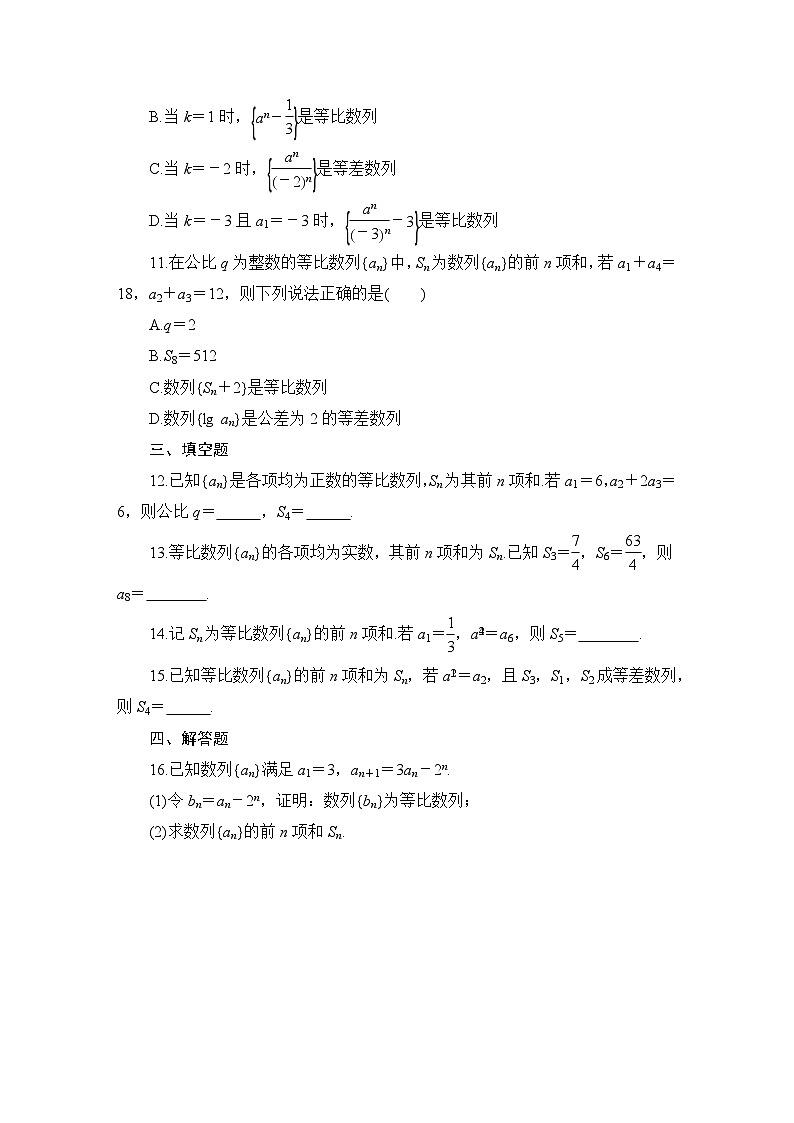 B.当 k=1 时，{aⁿ-1/3}是等比数列
C.当 k=-2 时，{aⁿ/(-2)ⁿ}是等差数列
D.当 k=-3 且 a₁=-3 时，{aⁿ/(-3)ⁿ-3}是等比数列
11.在公比 q 为整数的等比数列{aₙ}中，Sₙ为数列{aₙ}的前 n 项和，若 a₁+a₄=
18，a₂+a₃=12，则下列说法正确的是(　　)
A.q=2
B.S₈=512
C.数列{Sₙ+2}是等比数列
D.数列{lg aₙ}是公差为 2 的等差数列
三、填空题
12.已知{aₙ}是各项均为正数的等比数列，Sₙ为其前 n 项和.若 a₁=6，a₂+2a₃=
6，则公比 q=______，S₄=______.
13.等比数列{aₙ}的各项均为实数，其前 n 项和为 Sₙ.已知 S₃=7/4，S₆=63/4，则
a₈=________.
14.记 Sₙ为等比数列{aₙ}的前 n 项和.若 a₁=1/3，a₄²=a₆，则 S₅=________.
15.已知等比数列{aₙ}的前 n 项和为 Sₙ，若 a₁²=a₂，且 S₃，S₁，S₂成等差数列，
则 S₄=______.
四、解答题
16.已知数列{aₙ}满足 a₁=3，aₙ₊₁=3aₙ-2ⁿ.
(1)令 bₙ=aₙ-2ⁿ，证明：数列{bₙ}为等比数列；
(2)求数列{aₙ}的前 n 项和 Sₙ.